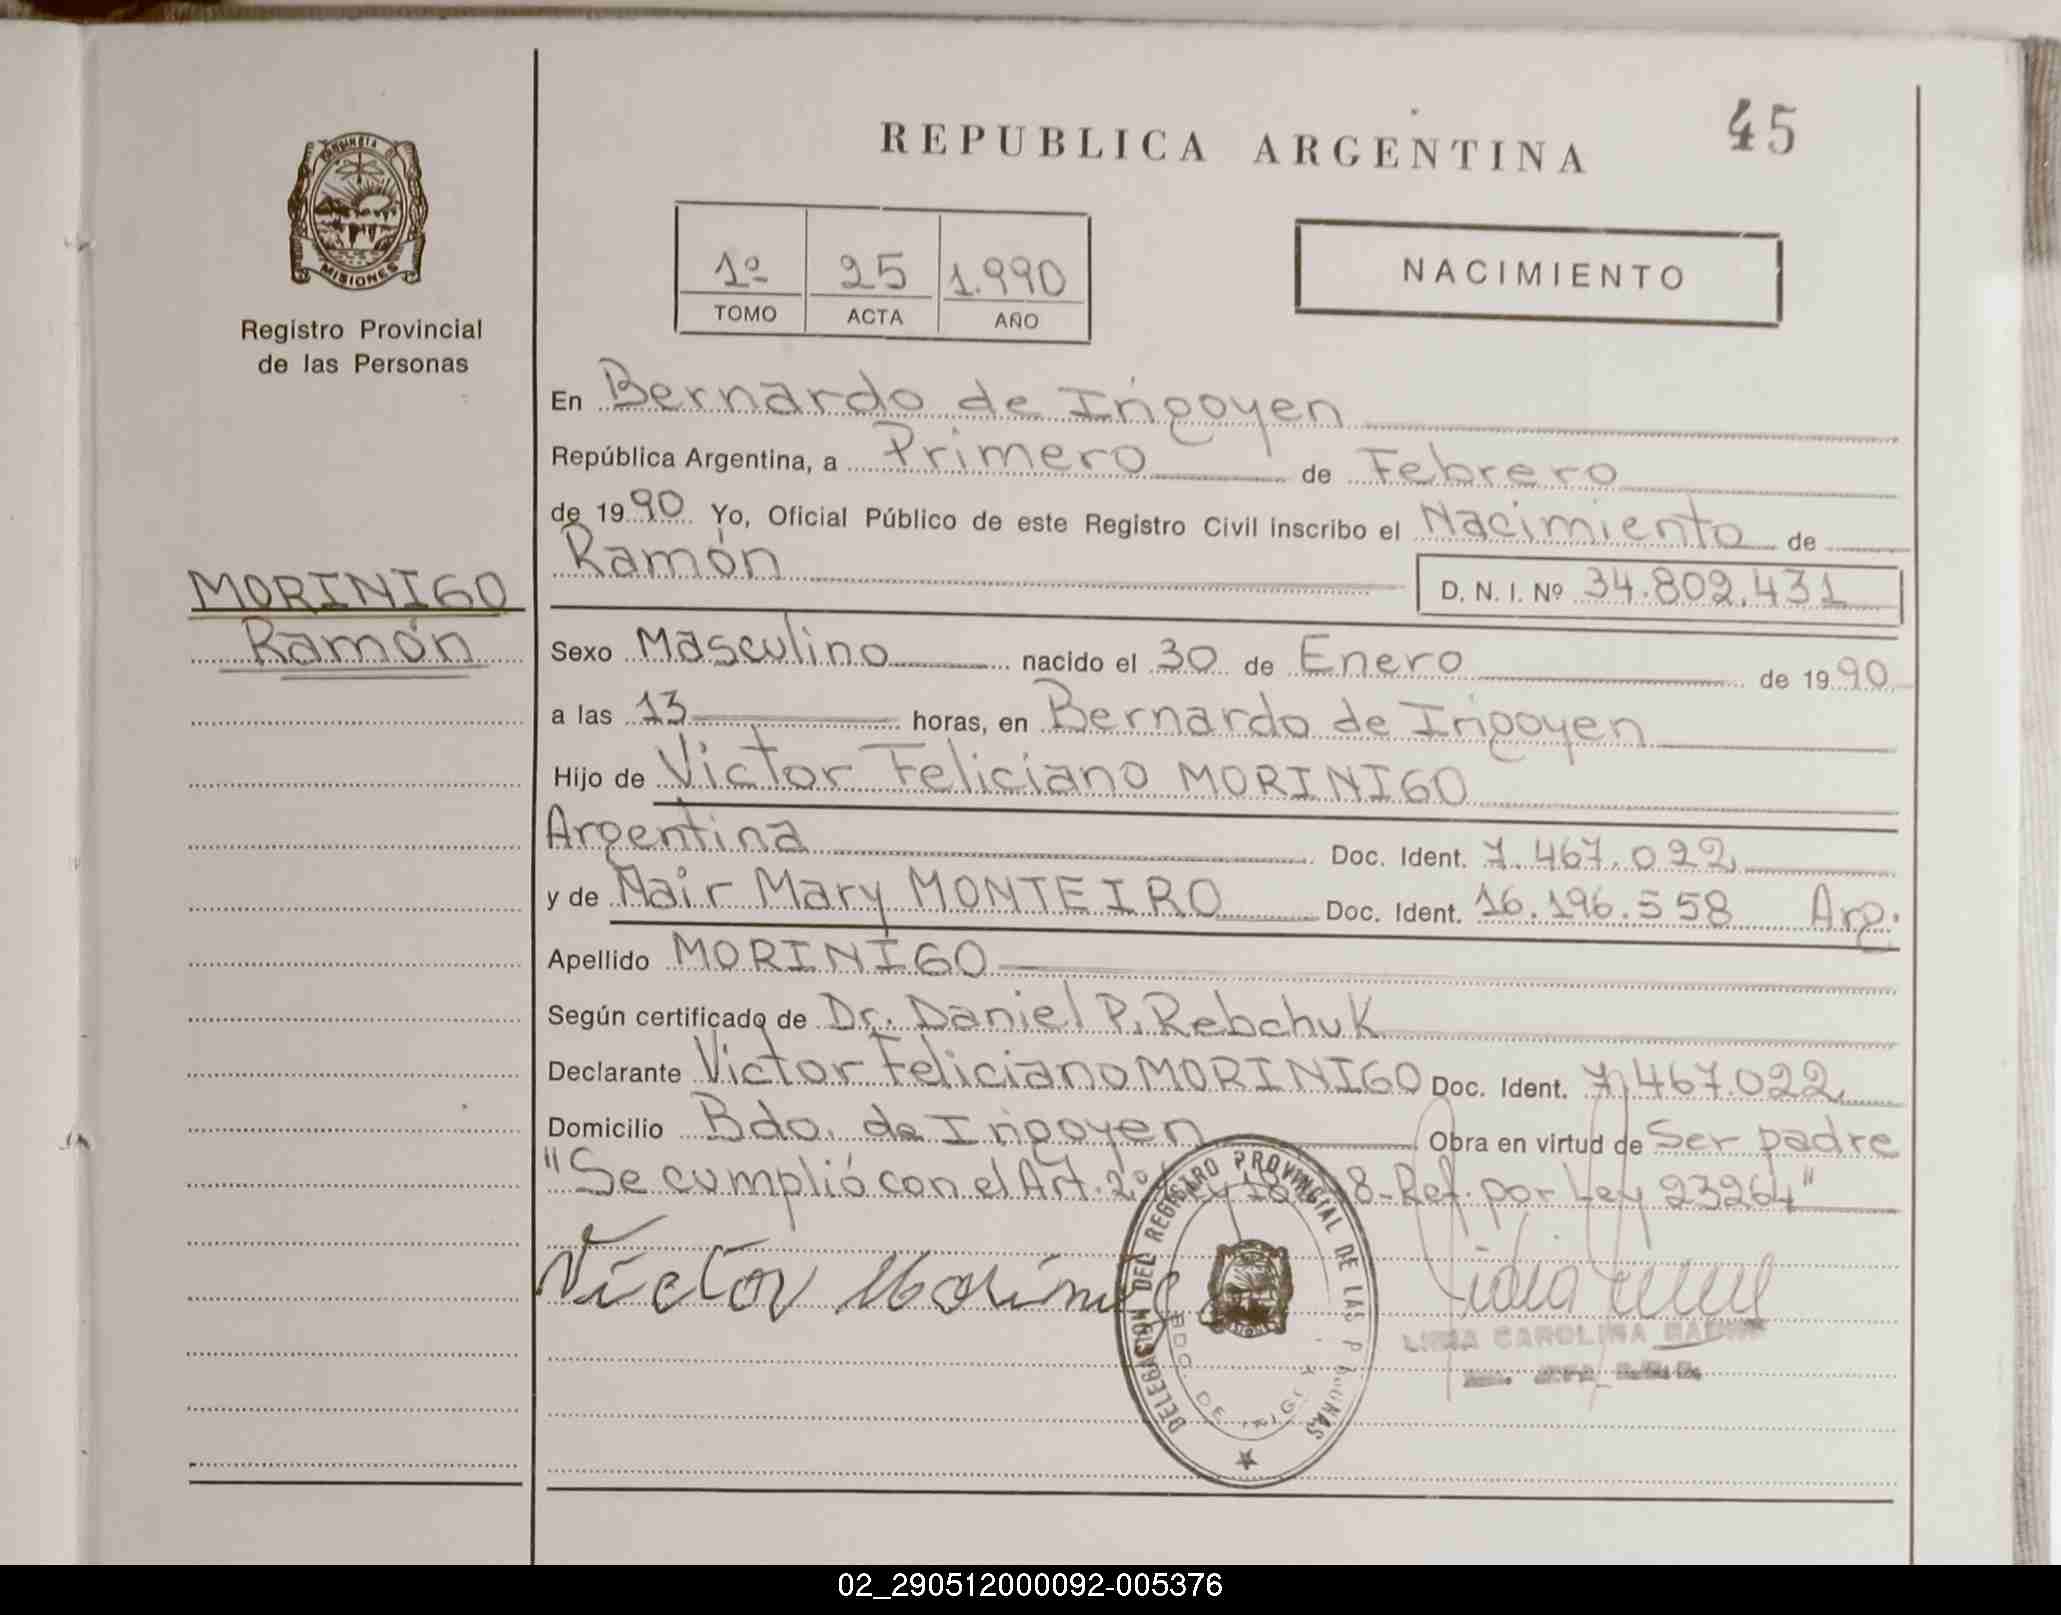 REPUBLICA ARGENTINA
45
PROVINCIA
MISIONES
Registro Provincial
de las Personas
1º 25 1.990
TOMO ACTA AÑO
NACIMIENTO
En Bernardo de Irigoyen
República Argentina, a Primero de Febrero
de 1990 Yo, Oficial Público de este Registro Civil inscribo el Nacimiento de
Ramón
D. N. I. Nº 34.802.431
MORINIGO
Ramón
Sexo Masculino nacido el 30 de Enero de 1990
a las 13 horas, en Bernardo de Irigoyen
Hijo de Victor Feliciano MORINIGO
Argentina Doc. Ident. 7.467.022
y de Nair Mary MONTEIRO Doc. Ident. 16.196.558 Arg.
Apellido MORINIGO
Según certificado de Dr. Daniel P. Rebchuk
Declarante Victor Feliciano MORINIGO Doc. Ident. 7.467.022
Domicilio Bdo. de Irigoyen Obra en virtud de Ser padre
"Se cumplió con el Art. 2º 8-Ref. por Ley 23264"
Victor Morinigo
DELEGACION DEL REGISTRO PROVINCIAL DE LAS
BDO. DE
CAROLINA
02_290512000092-005376